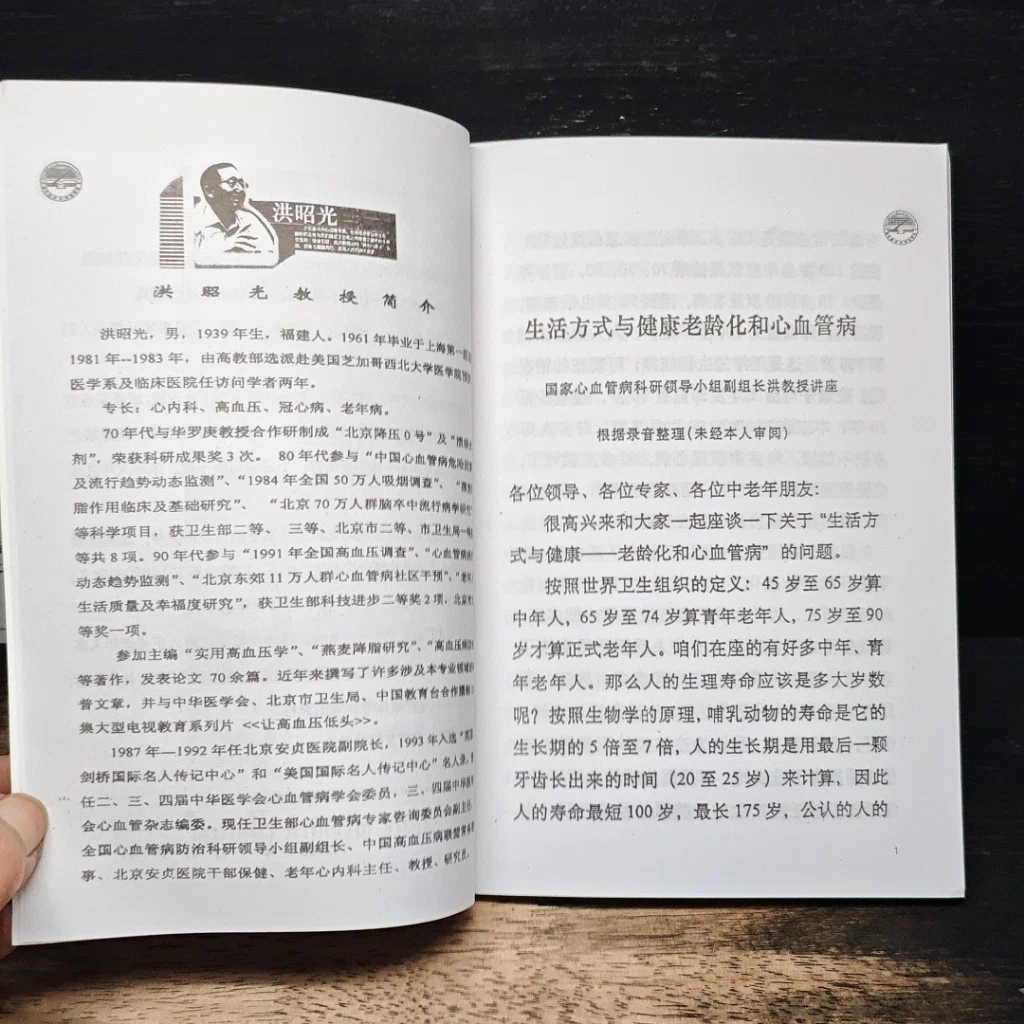 洪昭光
洪昭光教授简介
洪昭光，男，1939年生，福建人。1961年毕业于上海第一医
1981年--1983年，由高教部选派赴美国芝加哥西北大学医学院预防
医学系及临床医院任访问学者两年。
专长：心内科、高血压、冠心病、老年病。
70年代与华罗庚教授合作研制成“北京降压0号”及
剂”，荣获科研成果奖3次。 80年代参与“中国心血管病危险因素
及流行趋势动态监测”、“1984年全国50万人吸烟调查”、
脂作用临床及基础研究”、 “北京70万人群脑卒中流行病学研究”
等科学项目，获卫生部二等、 三等、北京市二等、市卫生局一等
等共8项。90年代参与“1991年全国高血压调查”、“心血管病
动态趋势监测”、“北京东郊11万人群心血管病社区干预”、“老年人
生活质量及幸福度研究”，获卫生部科技进步二等奖2项，北京市
等奖一项。
参加主编“实用高血压学”、“燕麦降脂研究”、“高血压病
等著作，发表论文 70余篇。近年来撰写了许多涉及本专业领域的
普文章，并与中华医学会、北京市卫生局、中国教育台合作播
集大型电视教育系列片 <<让高血压低头>>。
1987年—1992年任北京安贞医院副院长，1993年入选“英国
剑桥国际名人传记中心”和“美国国际名人传记中心”名人录，
任二、三、四届中华医学会心血管病学会委员，三、四届中华医学
会心血管杂志编委。现任卫生部心血管病专家咨询委员会副主任、
全国心血管病防治科研领导小组副组长、中国高血压病联盟常务理
事、北京安贞医院干部保健、老年心内科主任、教授、研究员，
生活方式与健康老龄化和心血管病
国家心血管病科研领导小组副组长洪教授讲座
根据录音整理(未经本人审阅)
各位领导、各位专家、各位中老年朋友：
很高兴来和大家一起座谈一下关于“生活方
式与健康——老龄化和心血管病”的问题。
按照世界卫生组织的定义：45岁至65岁算
中年人，65岁至74岁算青年老年人，75岁至90
岁才算正式老年人。咱们在座的有好多中年、青
年老年人。那么人的生理寿命应该是多大岁数
呢？按照生物学的原理，哺乳动物的寿命是它的
生长期的5倍至7倍，人的生长期是用最后一颗
牙齿长出来的时间（20至25岁）来计算，因此
人的寿命最短100岁，最长175岁，公认的人的
1